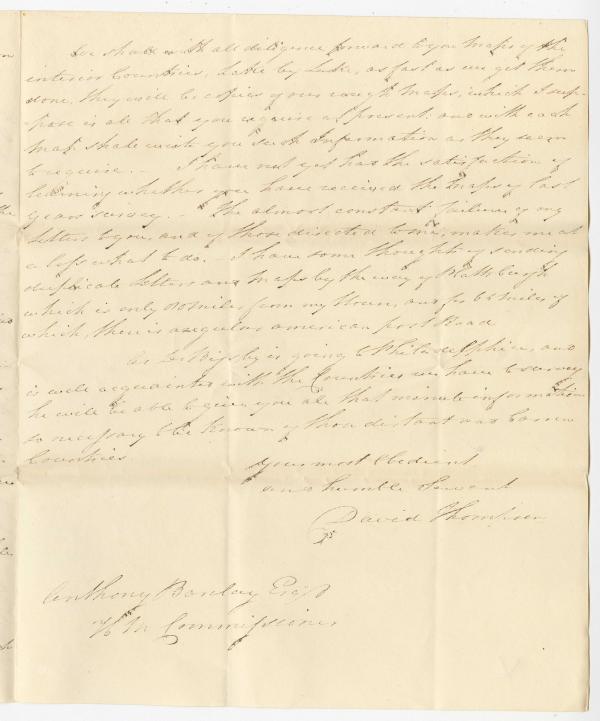 We shall with all diligence forward to you Maps of the
interior Countries, Lake by Lake, as fast as we get them
done, they will be copies of our rough Maps, which I sup-
pose is all that you require at present: and with each
Map shall write you such Information as they seem
to require. - I have not yet had the satisfaction of
learning whether you have received the Maps of last
years survey. - The almost constant failure of my
Letters to you, and of those directed to me, makes me at
a loss what to do. - I have some thoughts of sending
duplicate Letters and Maps by the way of Plattsburgh
which is only miles from my House, and for miles of
which, there is a regular american post Road
As Dr Bigsby is going to Philadelphia, and
is well acquainted with the Countries we have to survey
he will be able to give you all that minute information
so necessary to be known of those distant and barren
Countries.
Your most Obedient
and humble Servant
David Thompson
Anthony Barclay Esqr
H B M Commissioner